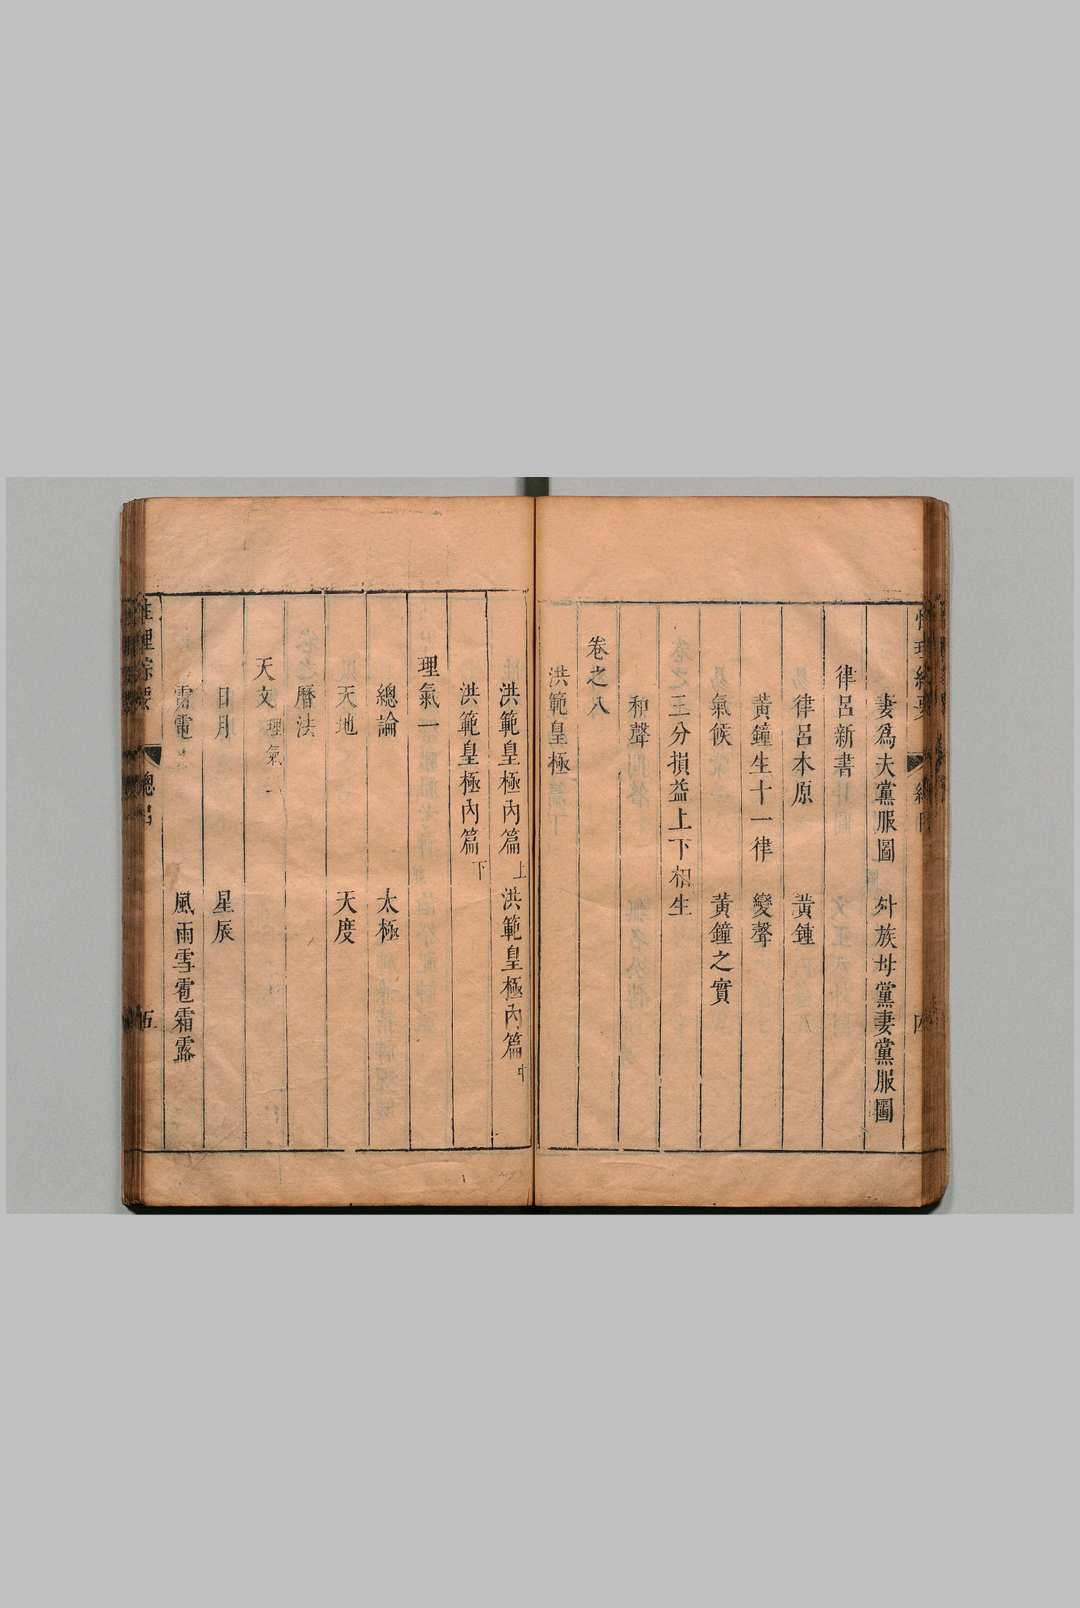 妻爲夫黨服圖 外族母黨妻黨服圖
律呂新書
律呂本原 黃鍾
黃鐘生十一律 變聲
氣候 黃鐘之實
三分損益上下相生
和聲
卷之八
洪範皇極
洪範皇極內篇上 洪範皇極內篇中
洪範皇極內篇下
理氣一
總論 太極
天地 天度
曆法
天文理氣一
日月 星辰
雷電 風雨雪雹霜露
性理綜要 總目 五